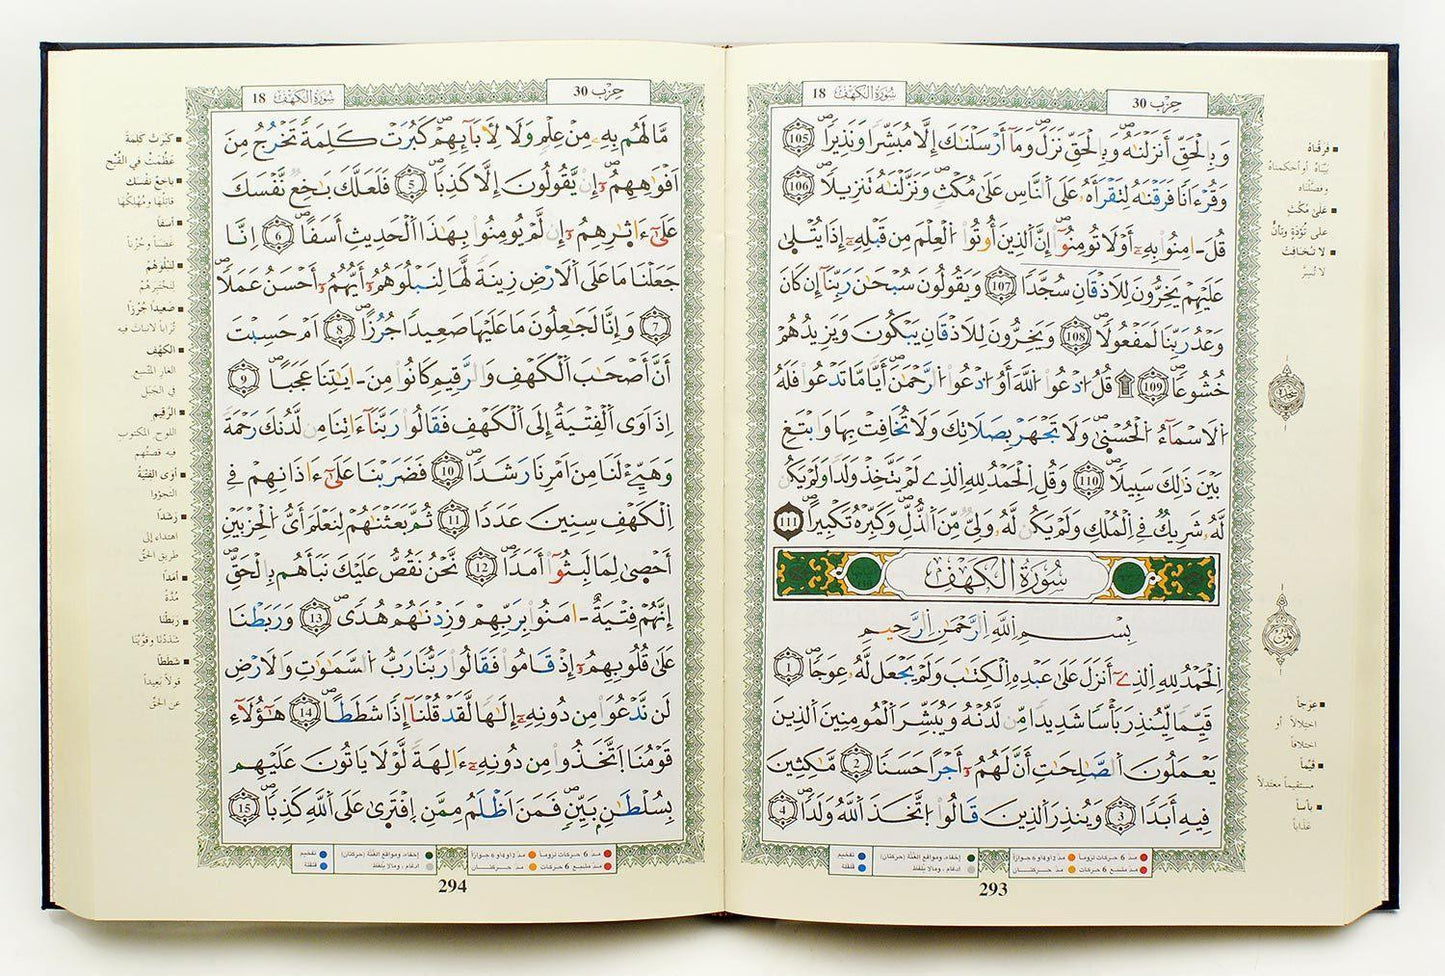 سُورَةُ الكَهْف 18
حِزْب 30
وَبِالْحَقِّ أَنزَلْنَاهُ وَبِالْحَقِّ نَزَلَ وَمَا أَرْسَلْنَاكَ إِلَّا مُبَشِّرًا وَنَذِيرًا 105
وَقُرْءَانًا فَرَقْنَاهُ لِتَقْرَأَهُ عَلَى النَّاسِ عَلَى مُكْثٍ وَنَزَّلْنَاهُ تَنزِيلًا 106
قُلَ امِنُوا بِهِ أَوْ لَا تُومِنُوا إِنَّ الذِينَ أُوتُوا الْعِلْمَ مِن قَبْلِهِ إِذَا يُتْلَى
عَلَيْهِمْ يَخِرُّونَ لِلْأَذْقَانِ سُجَّدًا 107 وَيَقُولُونَ سُبْحَانَ رَبِّنَا إِن كَانَ
وَعْدُ رَبِّنَا لَمَفْعُولًا 108 وَيَخِرُّونَ لِلْأَذْقَانِ يَبْكُونَ وَيَزِيدُهُمْ
خُشُوعًا 109 ۩ قُلُ ادْعُوا اللَّهَ أَوُ ادْعُوا الرَّحْمَٰنَ أَيًّا مَّا تَدْعُوا فَلَهُ
الَاسْمَاءُ الْحُسْنَى وَلَا تَجْهَرْ بِصَلَاتِكَ وَلَا تُخَافِتْ بِهَا وَابْتَغِ
بَيْنَ ذَلِكَ سَبِيلًا 110 وَقُلِ الْحَمْدُ لِلهِ الذِي لَمْ يَتَّخِذْ وَلَدًا وَلَمْ يَكُن
لَّهُ شَرِيكٌ فِي الْمُلْكِ وَلَمْ يَكُن لَّهُ وَلِيٌّ مِّنَ الذُّلِّ وَكَبِّرْهُ تَكْبِيرًا 111
سُورَةُ الكَهْفِ
بِسْمِ اللَّهِ الرَّحْمَٰنِ الرَّحِيمِ
الْحَمْدُ لِلهِ الذِي أَنزَلَ عَلَى عَبْدِهِ الْكِتَابَ وَلَمْ يَجْعَل لَّهُ عِوَجًا 1
قَيِّمًا لِّيُنذِرَ بَأْسًا شَدِيدًا مِّن لَّدُنْهُ وَيُبَشِّرَ الْمُومِنِينَ الذِينَ
يَعْمَلُونَ الصَّالِحَاتِ أَنَّ لَهُمُ أَجْرًا حَسَنًا 2 مَّاكِثِينَ
فِيهِ أَبَدًا 3 وَيُنذِرَ الذِينَ قَالُوا اتَّخَذَ اللَّهُ وَلَدًا 4
فَرَقْنَاهُ
بَيَّنَّاهُ أو أحكمناهُ
وفصَّلْنَاه
عَلَى مُكْثٍ
على تُؤَدَةٍ وتأنٍّ
لَا تُخَافِتْ
لا تُسِرَّ
سجدة
ثمن
عِوَجاً
اختلالاً أو
اختلافاً
قَيِّماً
مستقيماً معتدلاً
بَأْساً
عَذَاباً
مدّ 6 حركات لزوماً
مدّ 2 أو 4 أو 6 جوازاً
مدّ مشبع 6 حركات
مدّ حركتان
إخفاء، ومواقع الغُنَّة (حركتان)
إدغام، وما لا يُلفَظ
تفخيم
قلقلة
293
سُورَةُ الكَهْف 18
حِزْب 30
مَّا لَهُم بِهِ مِنْ عِلْمٍ وَلَا لِأَبَائِهِمْ كَبُرَتْ كَلِمَةً تَخْرُجُ مِنَ
اَفْوَاهِهِمُ إِن يَّقُولُونَ إِلَّا كَذِبًا 5 فَلَعَلَّكَ بَاخِعٌ نَّفْسَكَ
عَلَى ءَاثَارِهِمُ إِن لَّمْ يُومِنُوا بِهَذَا الْحَدِيثِ أَسَفًا 6 اِنَّا
جَعَلْنَا مَا عَلَى الَارْضِ زِينَةً لَّهَا لِنَبْلُوَهُمُ أَيُّهُمُ أَحْسَنُ عَمَلًا
7 وَإِنَّا لَجَاعِلُونَ مَا عَلَيْهَا صَعِيدًا جُرُزًا 8 اَمْ حَسِبْتَ
أَنَّ أَصْحَابَ الْكَهْفِ وَالرَّقِيمِ كَانُوا مِنَ ايَاتِنَا عَجَبًا 9
اِذَ اَوَى الْفِتْيَةُ إِلَى الْكَهْفِ فَقَالُوا رَبَّنَا ءَاتِنَا مِن لَّدُنكَ رَحْمَةً
وَهَيِّئْ لَنَا مِنَ اَمْرِنَا رَشَدًا 10 فَضَرَبْنَا عَلَى ءَاذَانِهِمْ فِي
الْكَهْفِ سِنِينَ عَدَدًا 11 ثُمَّ بَعَثْنَاهُمْ لِنَعْلَمَ أَيُّ الْحِزْبَيْنِ
أَحْصَى لِمَا لَبِثُوا أَمَدًا 12 نَّحْنُ نَقُصُّ عَلَيْكَ نَبَأَهُم بِالْحَقِّ
إِنَّهُمْ فِتْيَةٌ امَنُوا بِرَبِّهِمْ وَزِدْنَاهُمْ هُدًى 13 وَرَبَطْنَا
عَلَى قُلُوبِهِمُ إِذْ قَامُوا فَقَالُوا رَبُّنَا رَبُّ السَّمَاوَاتِ وَالَارْضِ
لَن نَّدْعُوَا مِن دُونِهِ إِلَهًا لَّقَدْ قُلْنَا إِذًا شَطَطًا 14 هَؤُلَاءِ
قَوْمُنَا اتَّخَذُوا مِن دُونِهِ ءَالِهَةً لَّوْلَا يَاتُونَ عَلَيْهِم
بِسُلْطَانٍ بَيِّنٍ فَمَنَ اَظْلَمُ مِمَّنِ افْتَرَى عَلَى اللَّهِ كَذِبًا 15
كَبُرَتْ كَلِمَةً
عَظُمَتْ في القُبْح
بَاخِعٌ نفْسَك
قاتلُها ومُهْلكُها
أسَفاً
غضباً وحُزْناً
لنَبْلُوَهُمُ
لنَخْتَبِرَهُمْ
صَعِيداً جُرُزاً
تُرَاباً لا نباتَ فيه
الكَهْفِ
الغار المتَّسع
في الجَبَل
الرَّقِيم
اللوح المكتوب
فيه قصتُهم
أوَى الفِتْيَةُ
التجؤوا
رَشَداً
اهتداء إلى
طريق الحَقّ
أمَداً
مُدَّةً
رَبَطْنَا
شَدَدْنَا وقوَّيْنا
شَطَطاً
قولاً بعيداً
عن الحَقِّ
مدّ 6 حركات لزوماً
مدّ 2 أو 4 أو 6 جوازاً
مدّ مشبع 6 حركات
مدّ حركتان
إخفاء، ومواقع الغُنَّة (حركتان)
إدغام، وما لا يُلفَظ
تفخيم
قلقلة
294